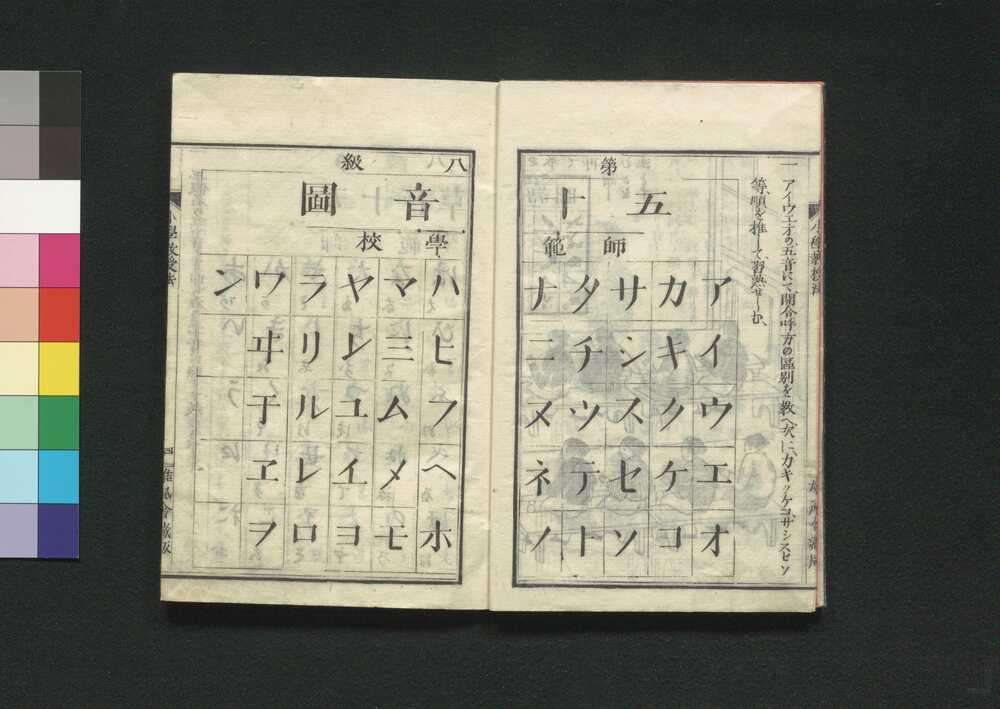 一アイウエオの五音にて、開合呼方の區別を教へ次に、カキクケコ、サシスセソ
等、順を推して、習熟せしむ、
第八級
五十音圖
師範學校
アイウエオ
カキクケコ
サシスセソ
タチツテト
ナニヌネノ
ハヒフヘホ
マミムメモ
ヤユヨ
ラリルレロ
ワヰ于ヱヲ
ン